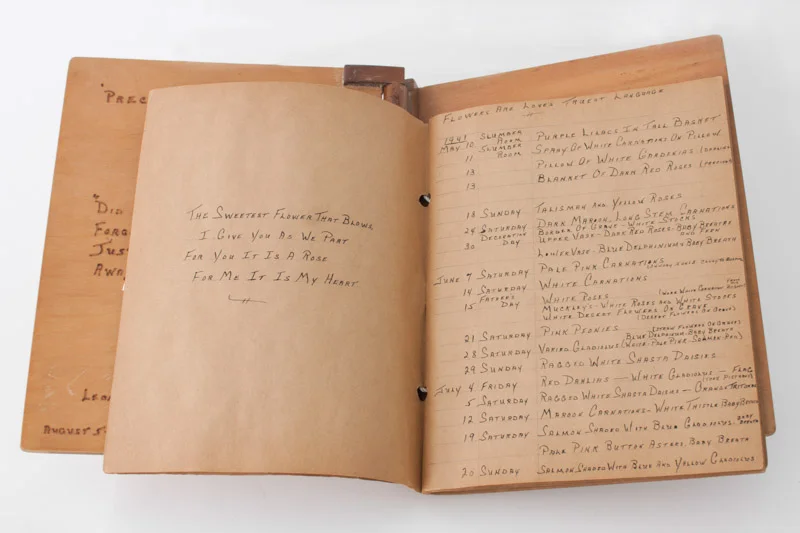 "PREC
"DID
FORG
JUST
AWA
LEA
AUGUST 5
THE SWEETEST FLOWER THAT BLOWS
I GIVE YOU AS WE PART
FOR YOU IT IS A ROSE
FOR ME IT IS MY HEART
FLOWERS ARE LOVES TRUEST LANGUAGE
1941
MAY 10 SLUMBER ROOM PURPLE LILACS IN TALL BASKET
11 SLUMBER ROOM SPRAY OF WHITE CARNATIONS ON PILLOW
13 PILLOW OF WHITE GARDENIAS
13 BLANKET OF DARK RED ROSES
18 SUNDAY TALISMAN AND YELLOW ROSES
24 SATURDAY DARK MAROON LONG STEM CARNATIONS
BORDER OF GRAVE - WHITE STOCKS
30 DECORATION DAY UPPER VASE - DARK RED ROSES - BABY BREATH
AND FERN
LOWER VASE - BLUE DELPHINIUM BABY BREATH
JUNE 7 SATURDAY PALE PINK CARNATIONS
14 SATURDAY WHITE CARNATIONS
15 FATHER'S DAY WHITE ROSES
MUCKLEY'S - WHITE ROSES AND WHITE STOCKS
WHITE DESERT FLOWERS ON GRAVE
(DESERT FLOWERS ON GRAVE)
21 SATURDAY PINK PEONIES
BLUE DELPHINIUM BABY BREATH
28 SATURDAY VARIED GLADIOLUS (WHITE - PALE PINK - SALMON - RED)
29 SUNDAY RAGGED WHITE SHASTA DAISIES
JULY 4 FRIDAY RED DAHLIAS - WHITE GLADIOLUS - FLAG
(TOOK PICTURES)
5 SATURDAY RAGGED WHITE SHASTA DAISIES - ORANGE TRITOMAS
12 SATURDAY MAROON CARNATIONS - WHITE THISTLE BABY BREATH
19 SATURDAY SALMON SHADED WITH BLUE GLADIOLUS - BABY BREATH
PALE PINK BUTTON ASTERS BABY BREATH
20 SUNDAY SALMON SHADED WITH BLUE AND YELLOW GLADIOLUS